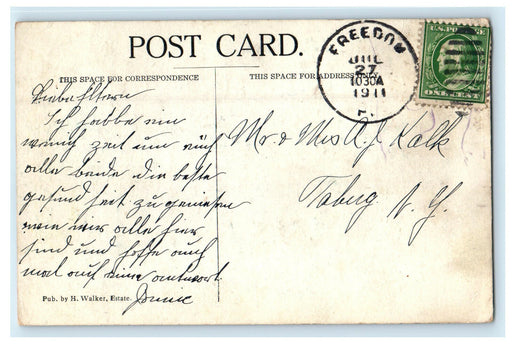 POST CARD.
THIS SPACE FOR CORRESPONDENCE
THIS SPACE FOR ADDRESS ONLY
FREEDOM
JUL
27
1030A
1911
U.S. POSTAGE
ONE CENT
Liebe Eltern
Ich habbe ein
wenig zeit um euch
alle beide die beste
gesund heit zu geniesen
wie wir alle hier
sind und hoffe auch
mal auf eine antwort
Mr & Mrs A J Kalk
Taberg N. Y.
Pub. by H. Walker, Estate.